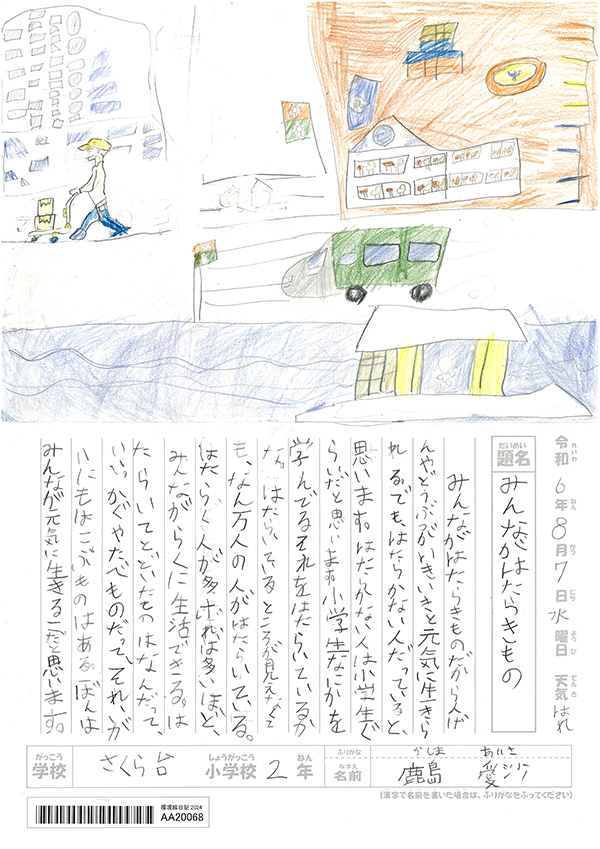 令和6年8月7日水曜日 天気はれ
題名 みんながはたらきもの
みんながはたらきものだから人げ
んやどうぶつがいきいきと元気に生きら
れる。でも、はたらかない人だっていると、
思います。はたらかない人は小学生ぐ
らいだと思います。小学生なにかを
学んでるそれをはたらいているか
な。はたらいているところが見えなくて
も、なん万人の人がはたらいている。
はたらく人が多ければ多いほど、
みんながらくに生活できる。は
たらいてとどいたものはなんだって、
いい。かぐやたべものだって、それいが
いにもはこぶものはある。
みんなが元気に生きる だと思います。
学校 さくら台 小学校 2年 名前 鹿島 愛沙
がっこう しょうがっこう ねん ふりがな なまえ かしま あいさ
(漢字で名前を書いた場合は、ふりがなをふってください)
環境絵日記 2024
AA20068